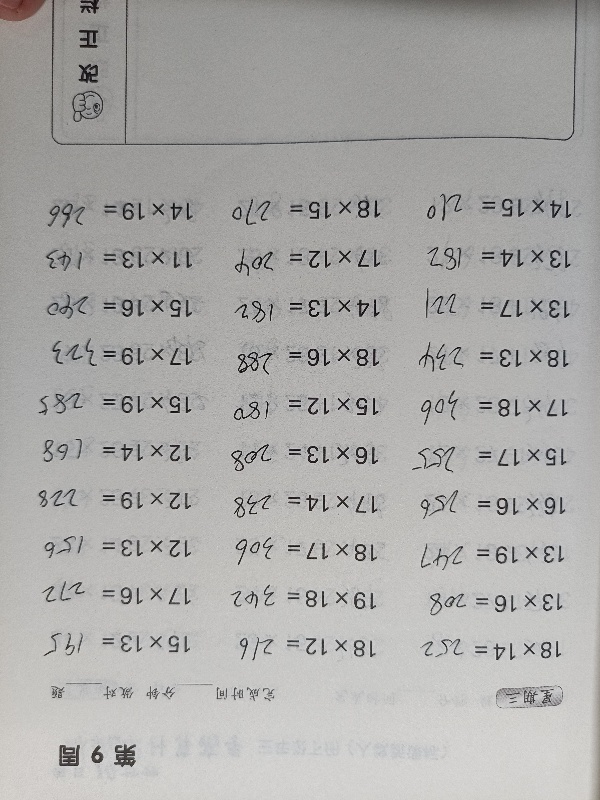 第 9 周
星期三 完成时间____分钟 做对____题
18×14= 252 18×12= 216 15×13= 195
13×16= 208 19×18= 342 17×16= 272
13×19= 247 18×17= 306 12×13= 156
16×16= 256 17×14= 238 12×19= 228
15×17= 255 16×13= 208 12×14= 168
17×18= 306 15×12= 180 15×19= 285
18×13= 234 18×16= 288 17×19= 323
13×17= 221 14×13= 182 15×16= 240
13×14= 182 17×12= 204 11×13= 143
14×15= 210 18×15= 270 14×19= 266
改正栏